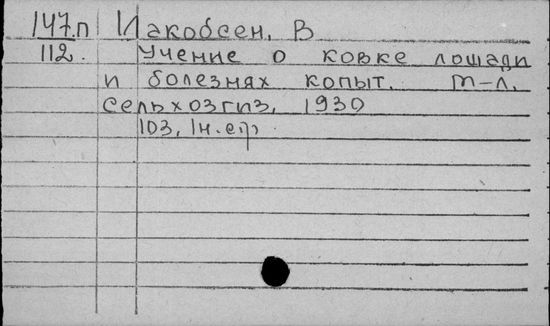 147.п Иакобсен, В
112. Учение о ковке лошади
и болезнях копыт. М-Л.
Сельхозгиз, 1930
103, 1н. стр.